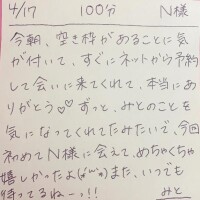 4/17 100分 N様
今朝、空き枠があることに気
が付いて、すぐにネットから予約
して会いに来てくれて、本当にあ
りがとう♡♡ずっと、みとのことを
気になってくれてたみたいで、今回
初めてN様に会えて、めちゃくちゃ
嬉しかったよ(๑'ω'๑)また、いつでも
待ってるねーっ!!
みと